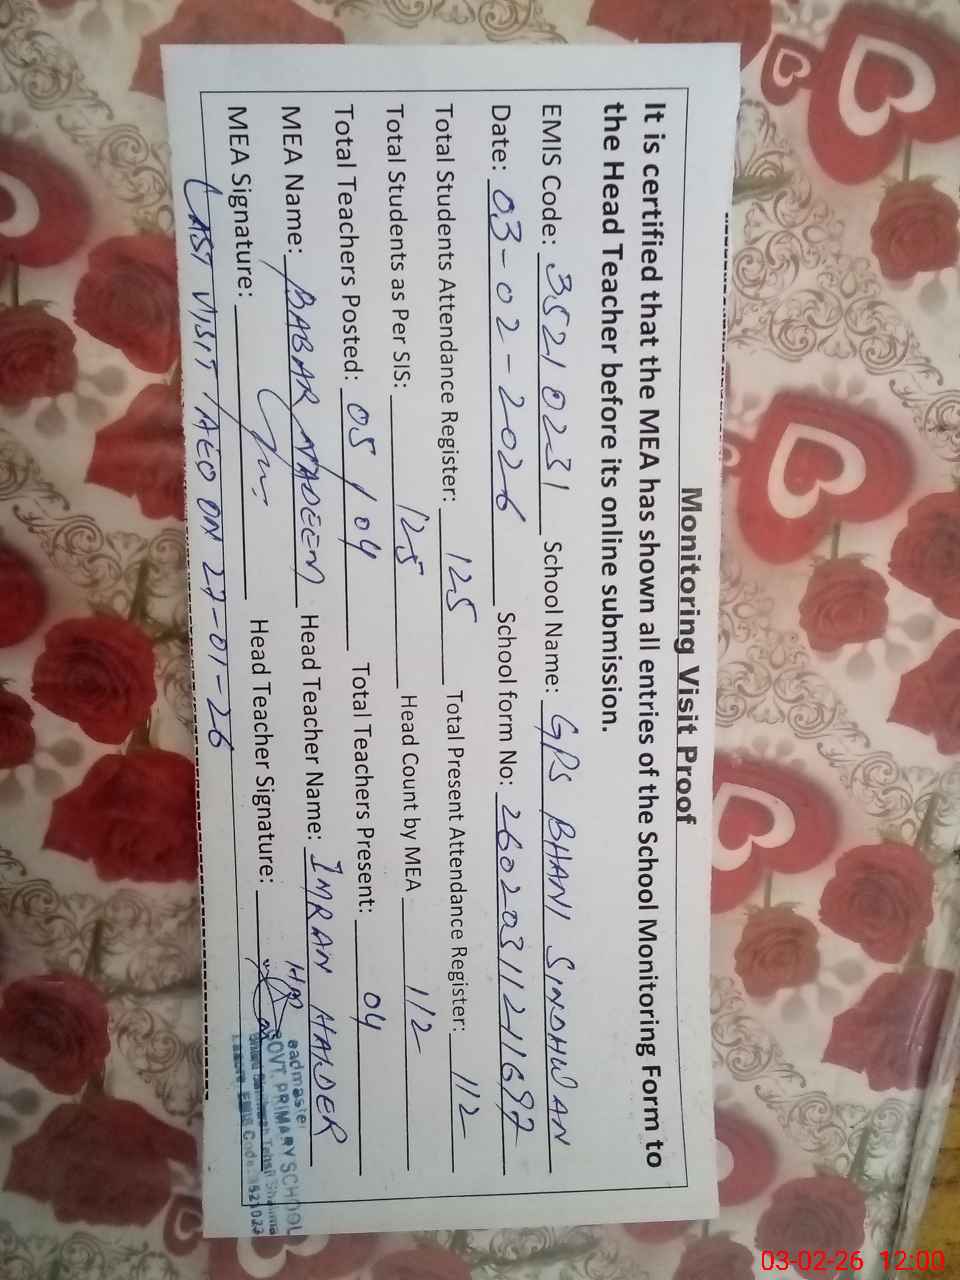 Monitoring Visit Proof
It is certified that the MEA has shown all entries of the School Monitoring Form to
the Head Teacher before its online submission.
EMIS Code: 35210231 School Name: GPS BHANI SINDHWAN
Date: 03-02-2026 School form No: 26020311211697
Total Students Attendance Register: 125 Total Present Attendance Register: 112
Total Students as Per SIS: 125 Head Count by MEA 112
Total Teachers Posted: 05/04 Total Teachers Present: 04
MEA Name: BABAR NADEEM Head Teacher Name: IMRAN HAIDER
MEA Signature: Head Teacher Signature:
LAST VISIT AEO ON 27-01-26
GOVT. PRIMARY SCHOOL
EMIS Code:
03-02-26 12:00